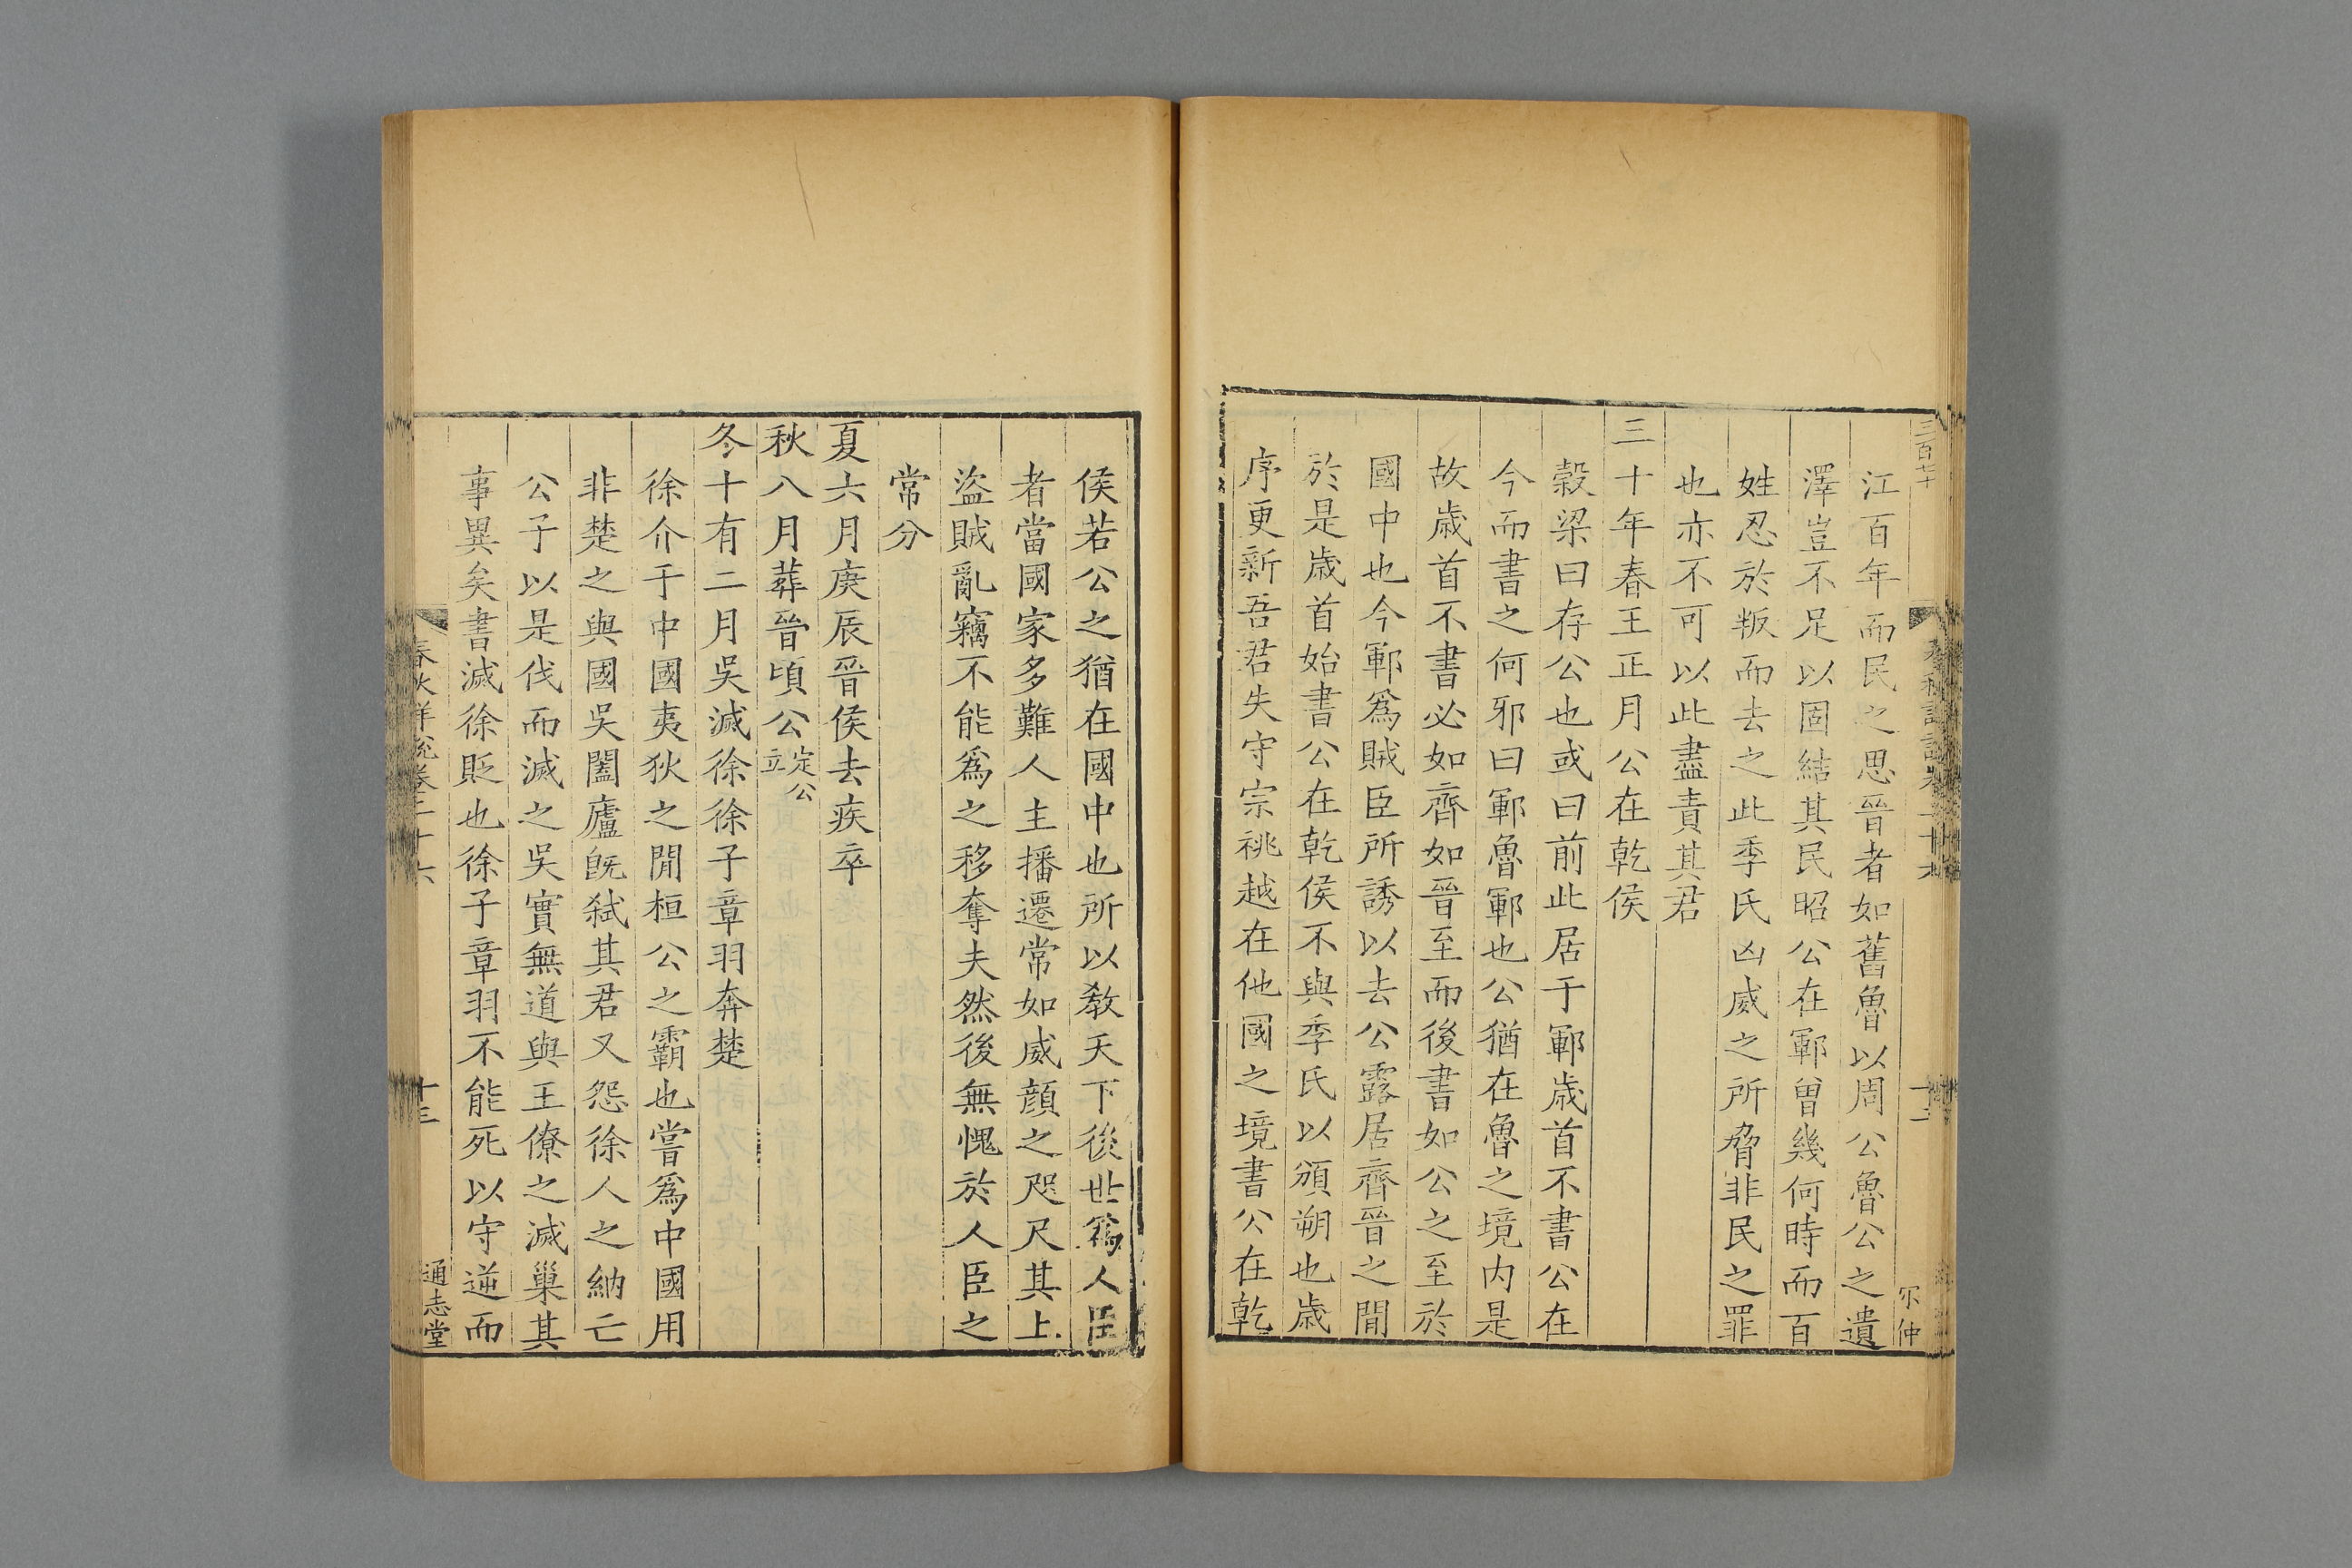 三百七十
春秋詳說卷二十六
十二
尔仲
江百年而民之思晉者如舊魯以周公魯公之遺
澤豈不足以固結其民昭公在鄆曾幾何時而百
姓忍於叛而去之此季氏凶威之所脅非民之罪
也亦不可以此盡責其君
三十年春王正月公在乾侯
穀梁曰存公也或曰前此居于鄆歳首不書公在
今而書之何邪曰鄆魯鄆也公猶在魯之境内是
故歳首不書必如齊如晉至而後書如公之至於
國中也今鄆爲賊臣所誘以去公露居齊晉之閒
於是歳首始書公在乾侯不與季氏以頒朔也歳
序更新吾君失守宗祧越在他國之境書公在乾
侯若公之猶在國中也所以教天下後世爲人臣
者當國家多難人主播遷常如威顔之咫尺其上
盜賊亂竊不能爲之移奪夫然後無愧於人臣之
常分
夏六月庚辰晉侯去疾卒
秋八月葬晉頃公定公立
冬十有二月吳滅徐徐子章羽奔楚
徐介于中國夷狄之閒桓公之霸也嘗爲中國用
非楚之與國吳闔廬旣弑其君又怨徐人之納亡
公子以是伐而滅之吳實無道與王僚之滅巢其
事異矣書滅徐貶也徐子章羽不能死以守逆而
春秋詳說卷二十六
十三
通志堂